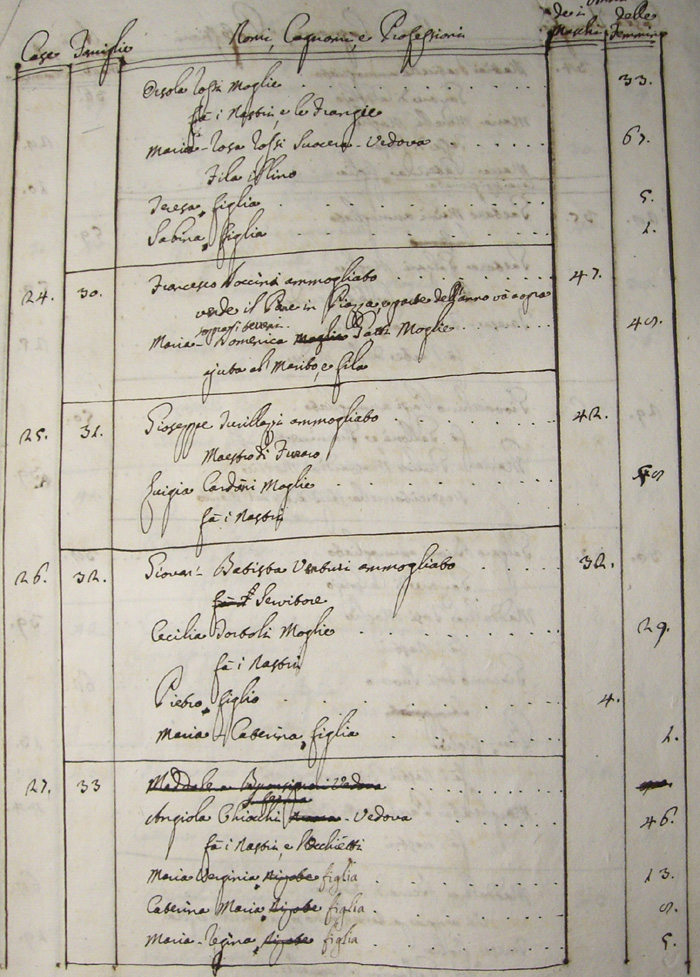 Case Famiglie Nomi, Cognomi, e Professioni de i Maschi delle Femmine
Orsola Rossi Moglie 33.
fà i Nastri e le Frangie
Maria-Rosa Rossi Suocera-Vedova 67.
Fila il lino
Teresa, figlia 5.
Sabina, figlia 1.
24. 30. Francesco ammogliato 47.
vende il Pane in Piazza, e parte dell'anno và a opra
Maria-Domenica Moglie Gatti Moglie 49.
ajuta al Marito, e fila
25. 31. Giuseppe ammogliato 42.
Maestro di
Luigia Cardini Moglie
fà i Nastri
26. 32. Giovan-Batista Venturi ammogliato 32.
Servitore
Cecilia Moglie 29.
fà i Nastri
Pietro, figlio 4.
Maria-Caterina, figlia 1.
27. 33 Maddalena Vedova
Angiola Chiochi Vedova 46.
fà i Nastri, e
Maria Verginia, Nipote figlia 13.
Caterina Maria, Nipote figlia 9.
Maria-Regina, Nipote figlia 5.